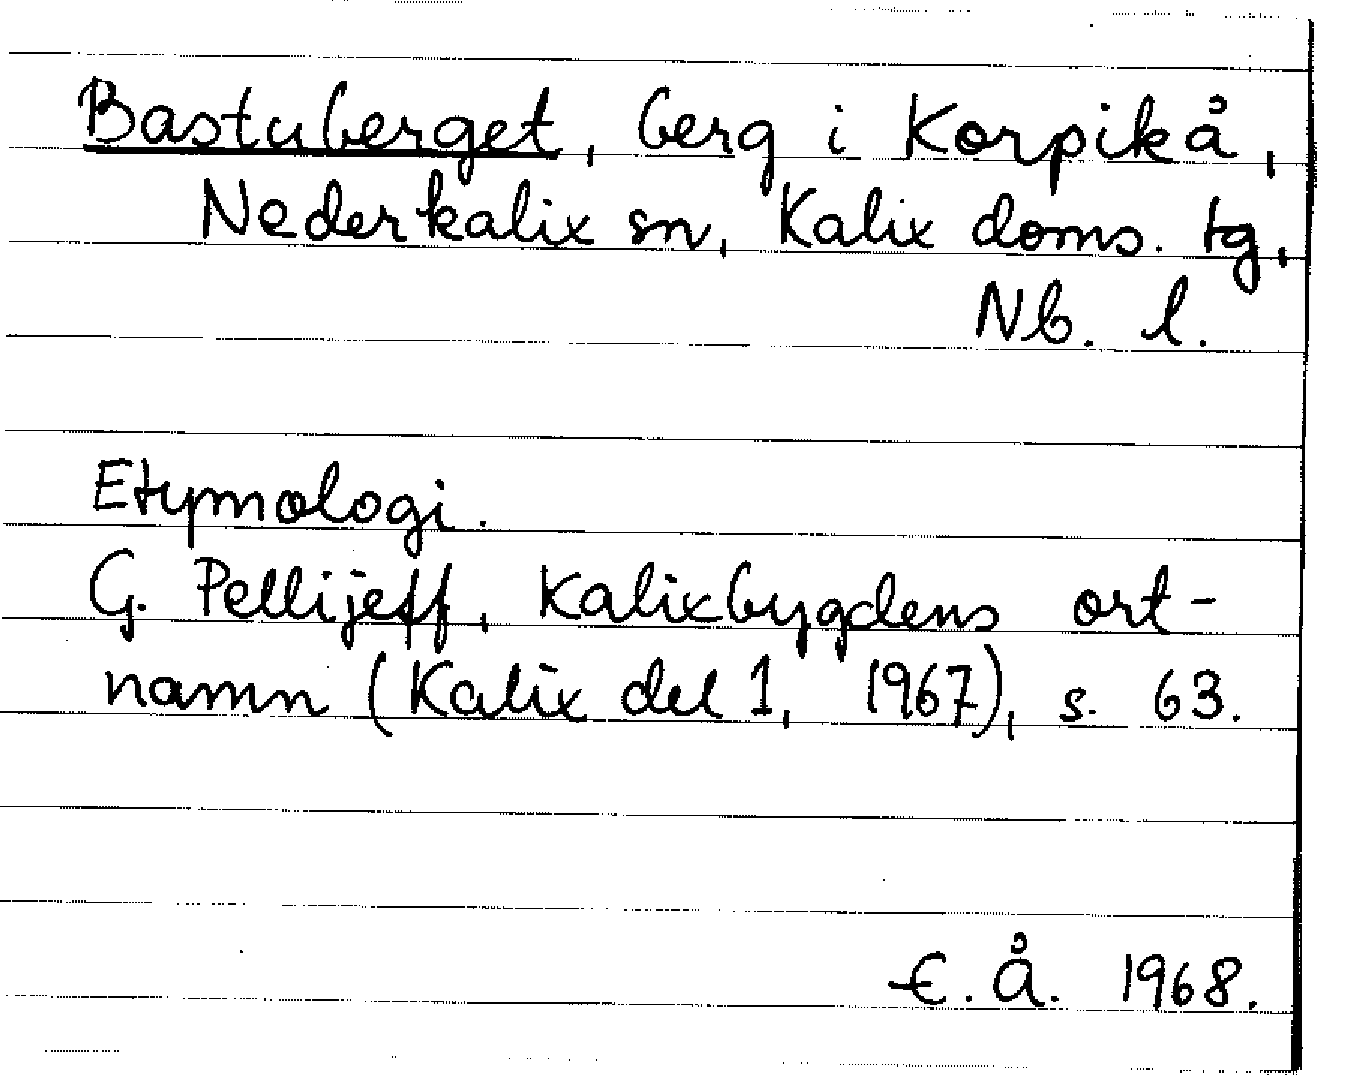 Bastuberget, berg i Korpikå,
Nederkalix sn, Kalix doms. tg,
Nb. l.
Etymologi.
G. Pellijeff, Kalixbygdens ort-
namn (Kalix del 1, 1967), s. 63.
E. Å. 1968.